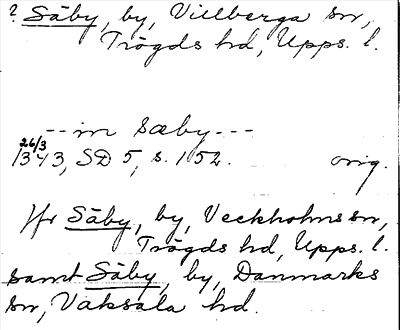 ? Säby, by, Villberga sn,
Trögds hd, Upps. l.
--in Sæby---
26/3
1343, SD 5, s. 152. orig.
Jfr Säby, by, Veckholms sn,
Trögds hd, Upps. l.
samt Säby, by, Danmarks
sn, Vaksala hd.